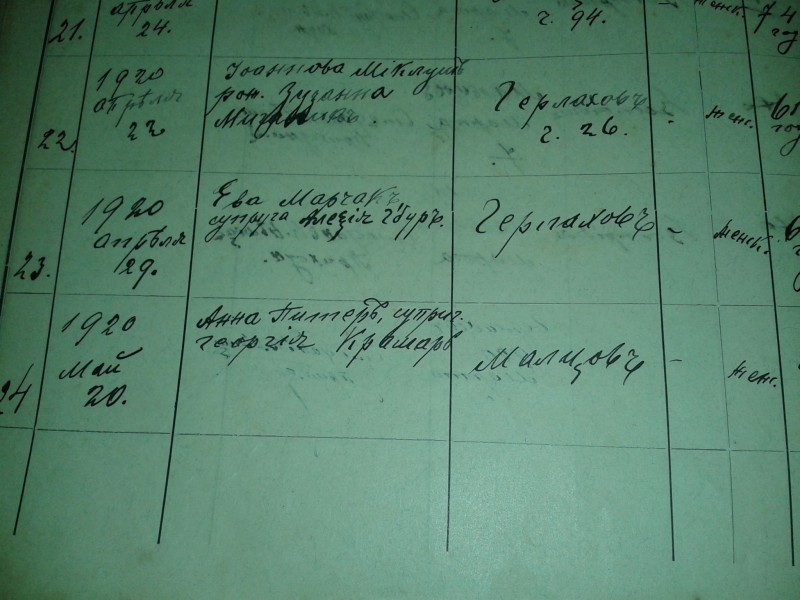 21. апрѣля 24. ч. 94. - женск. 74 год
22. 1920 апрѣля 22 Іоаннова Міклушъ рож. Зузанна Герлаховъ ч. 26. - женс.
23. 1920 апрѣля 29. Ева Марчакъ, супруга Алезія Гбуръ. Герлаховъ - женск.
24 1920 Май 20. Анна Питеръ, супруг. Георгія Крамаръ Малцовъ - женс.